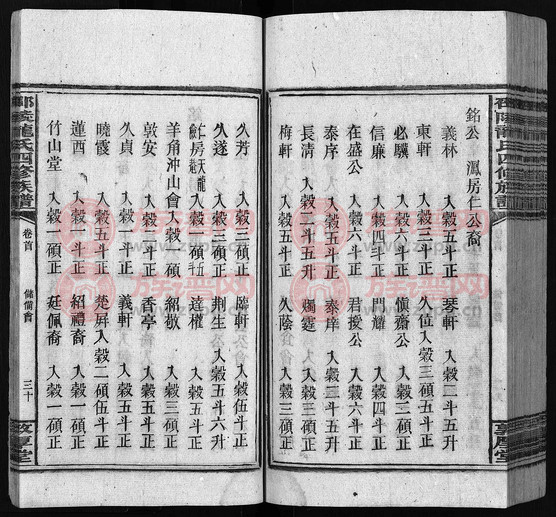 邵陵龍氏四修族譜
銘公 鳳房仁公裔
義林 入穀五斗正 琴軒 入穀二斗五升
東軒 入穀三斗正 久位入穀三碩五斗正
必驥 入穀六斗正 慎齋公 入穀二碩正
信廉 入穀四斗正 門耀 入穀四斗正
在盛公 入穀六斗正 君援公 入穀二斗正
泰序 入穀五斗正 泰庠 入穀二斗正
長清 入穀二斗五升 燭霆 入穀二斗正
梅軒 入穀五斗正 久蔭 入穀三碩正
敦厚堂
久芳 入穀三碩正 臨軒 入穀伍斗正
久遂 入穀三斗正 荊生 入穀五斗六升
仁房天龍 入穀一碩五 達權 入穀五斗正
羊角沖山會 入穀一碩 紹敬 入穀一碩正
敦安 入穀五斗正 香亭 入穀五斗正
久貞 入穀六斗正 義軒 入穀五斗正
曉霞 入穀五斗正 楚屏 入穀二碩伍斗正
蓮西 入穀一斗正 紹禮裔 入穀一碩正
竹山堂 入穀一碩正 廷佩裔 入穀一碩正
邵陵龍氏四修族譜
卷首
儲備會
三十
敦厚堂
族譜网
www.zupu.cn